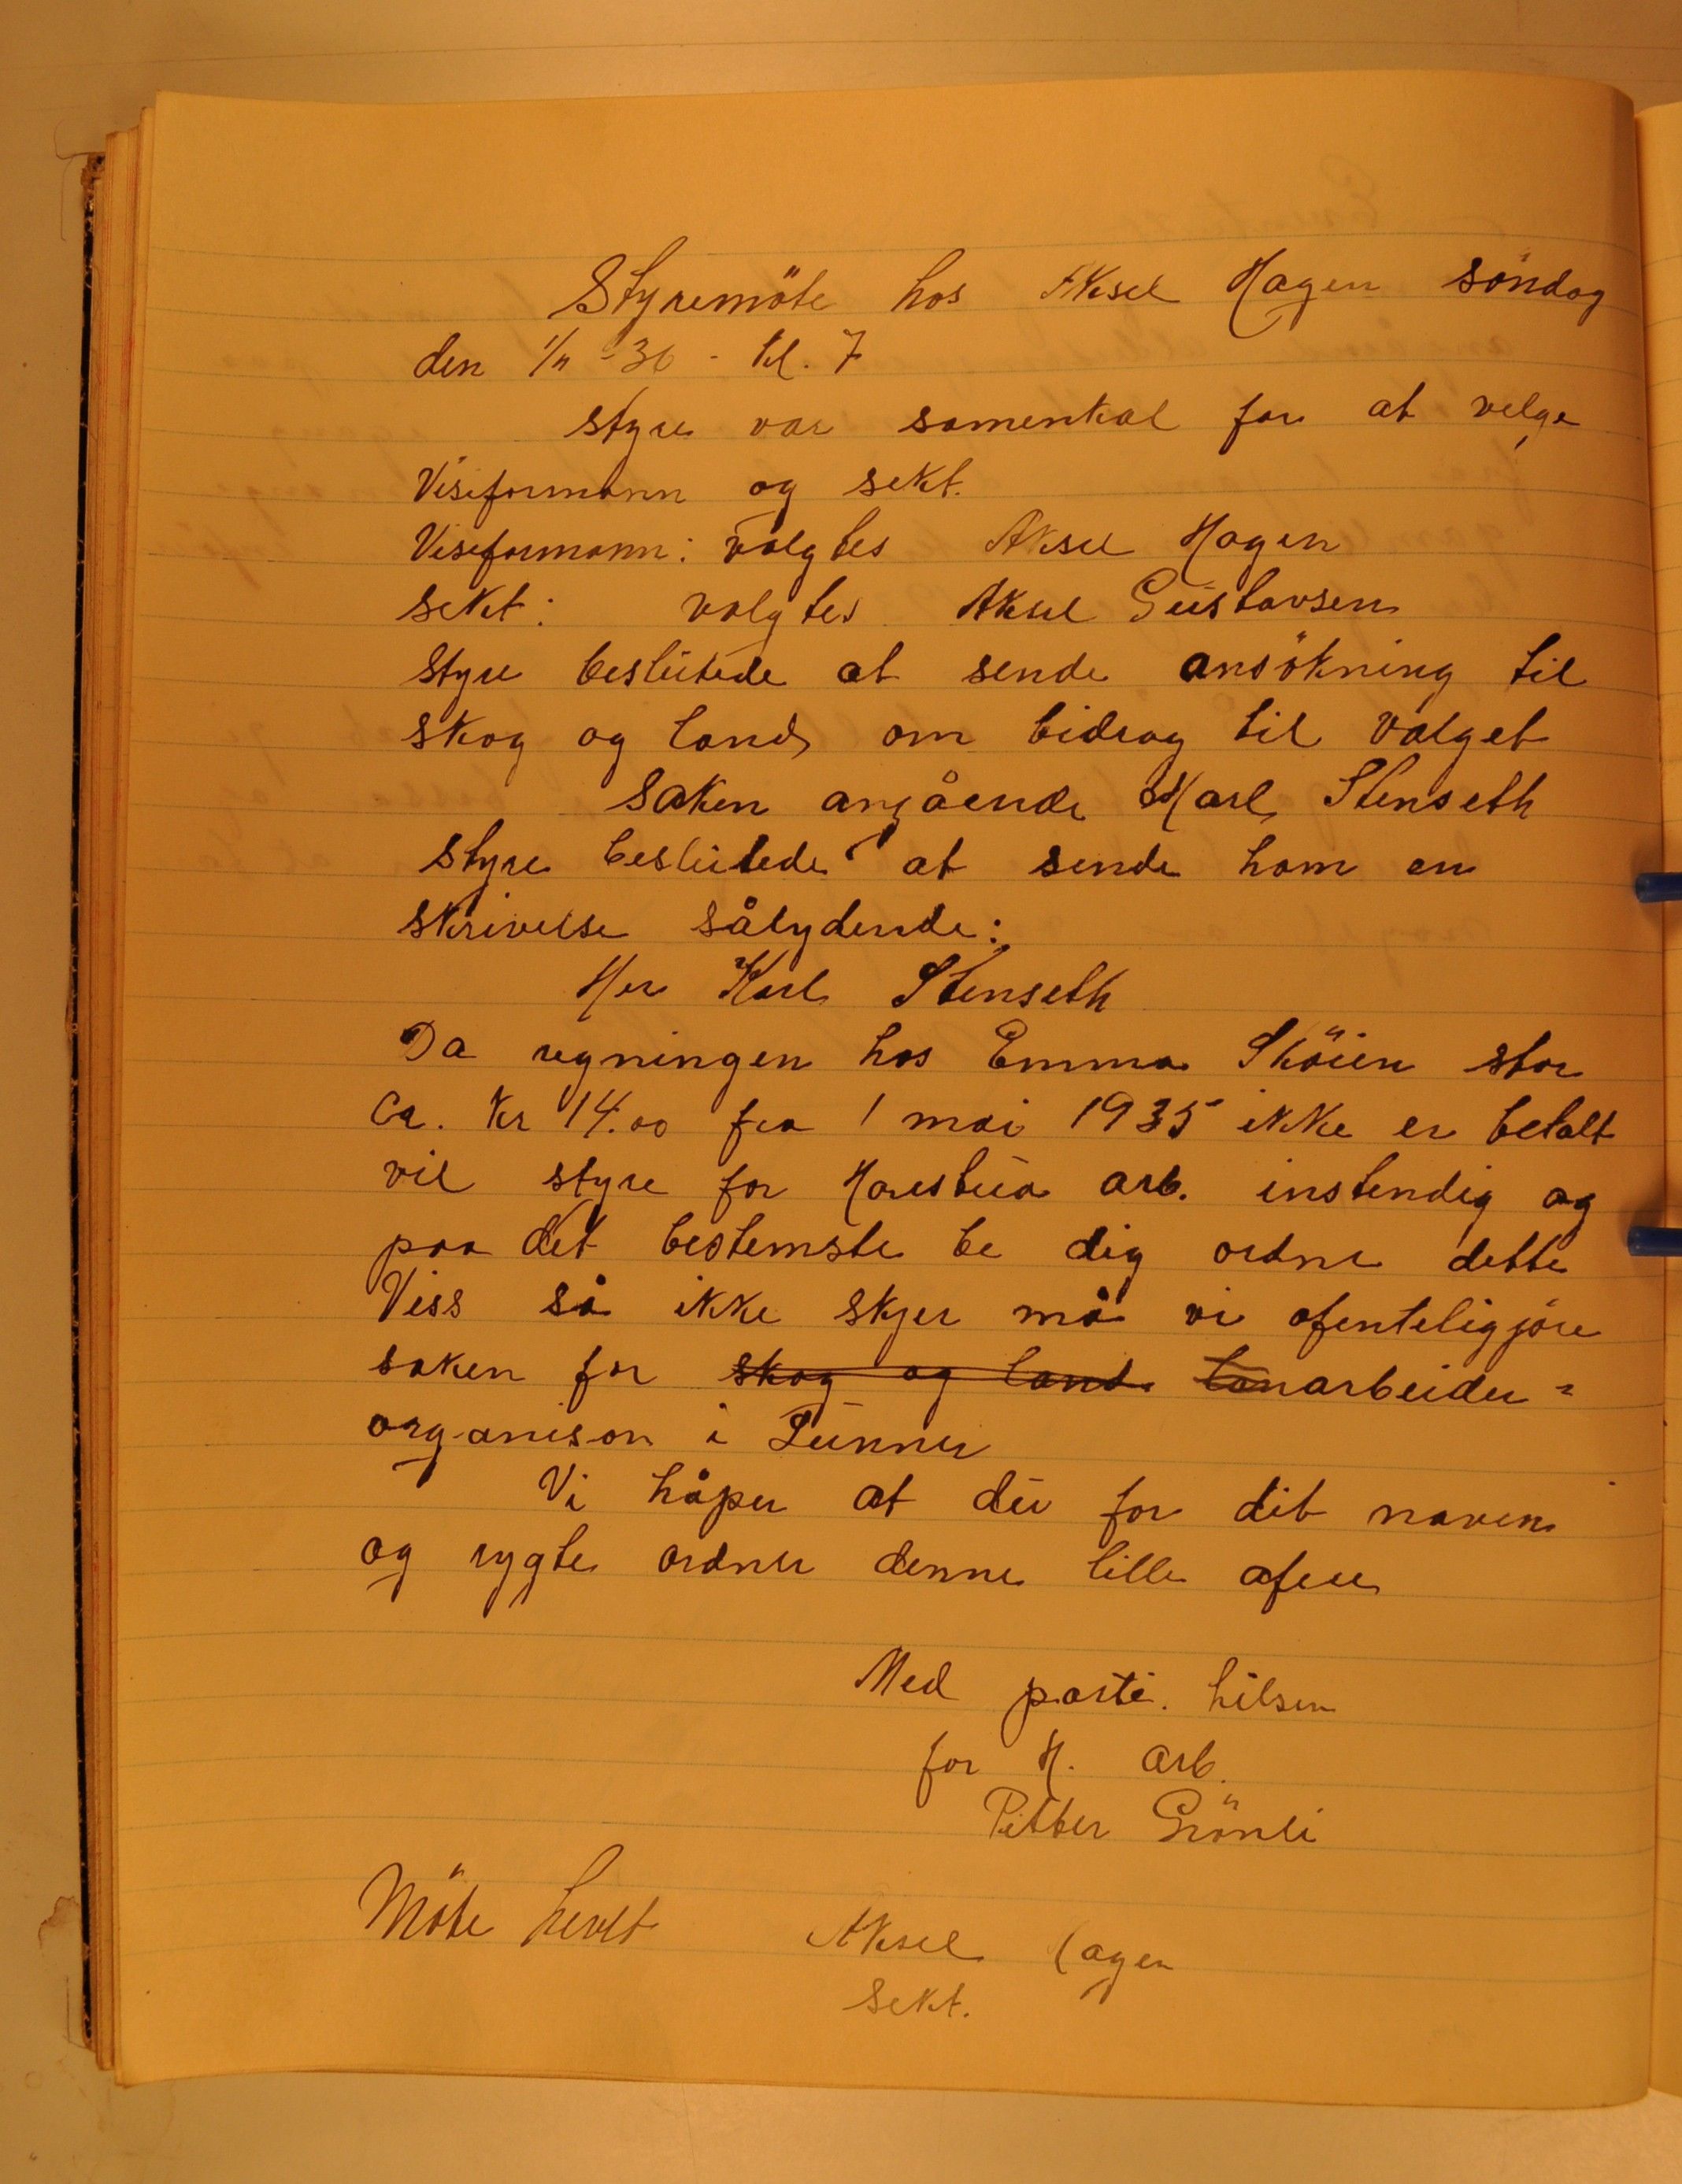 Styremöte hos Aksel Hagen söndag
den 1/11 - 36 - kl. 7
styre var samenkal for at velge
Viseformann og sekt.
Viseformann: valgtes Aksel Hagen
sekt: valgtes Aksel Gustavsen
Styre beslutede at sende ansökning til
skog og land om bidrag til valget
Saken angående Karl Stenseth
styre beslutede at sende ham en
skrivelse sålydende:
Her Karl Stenseth
Da regningen hos Emma Sköien stor
Ca. kr 14.00 fra 1 mai 1935 ikke er betalt
vil styre for Harestua arb. instendig og
paa det bestemste be dig ordne dette
Viss så ikke skjer må vi ofenteligjöre
saken for skog og land. lanarbeider=
organison i Lunner
Vi håper at du for dit naven
og rygte ordner denne lille afere
Med parti. hilsen
for H. arb.
Petter Grönli
Möte hevet Aksel Hagen
sekt.